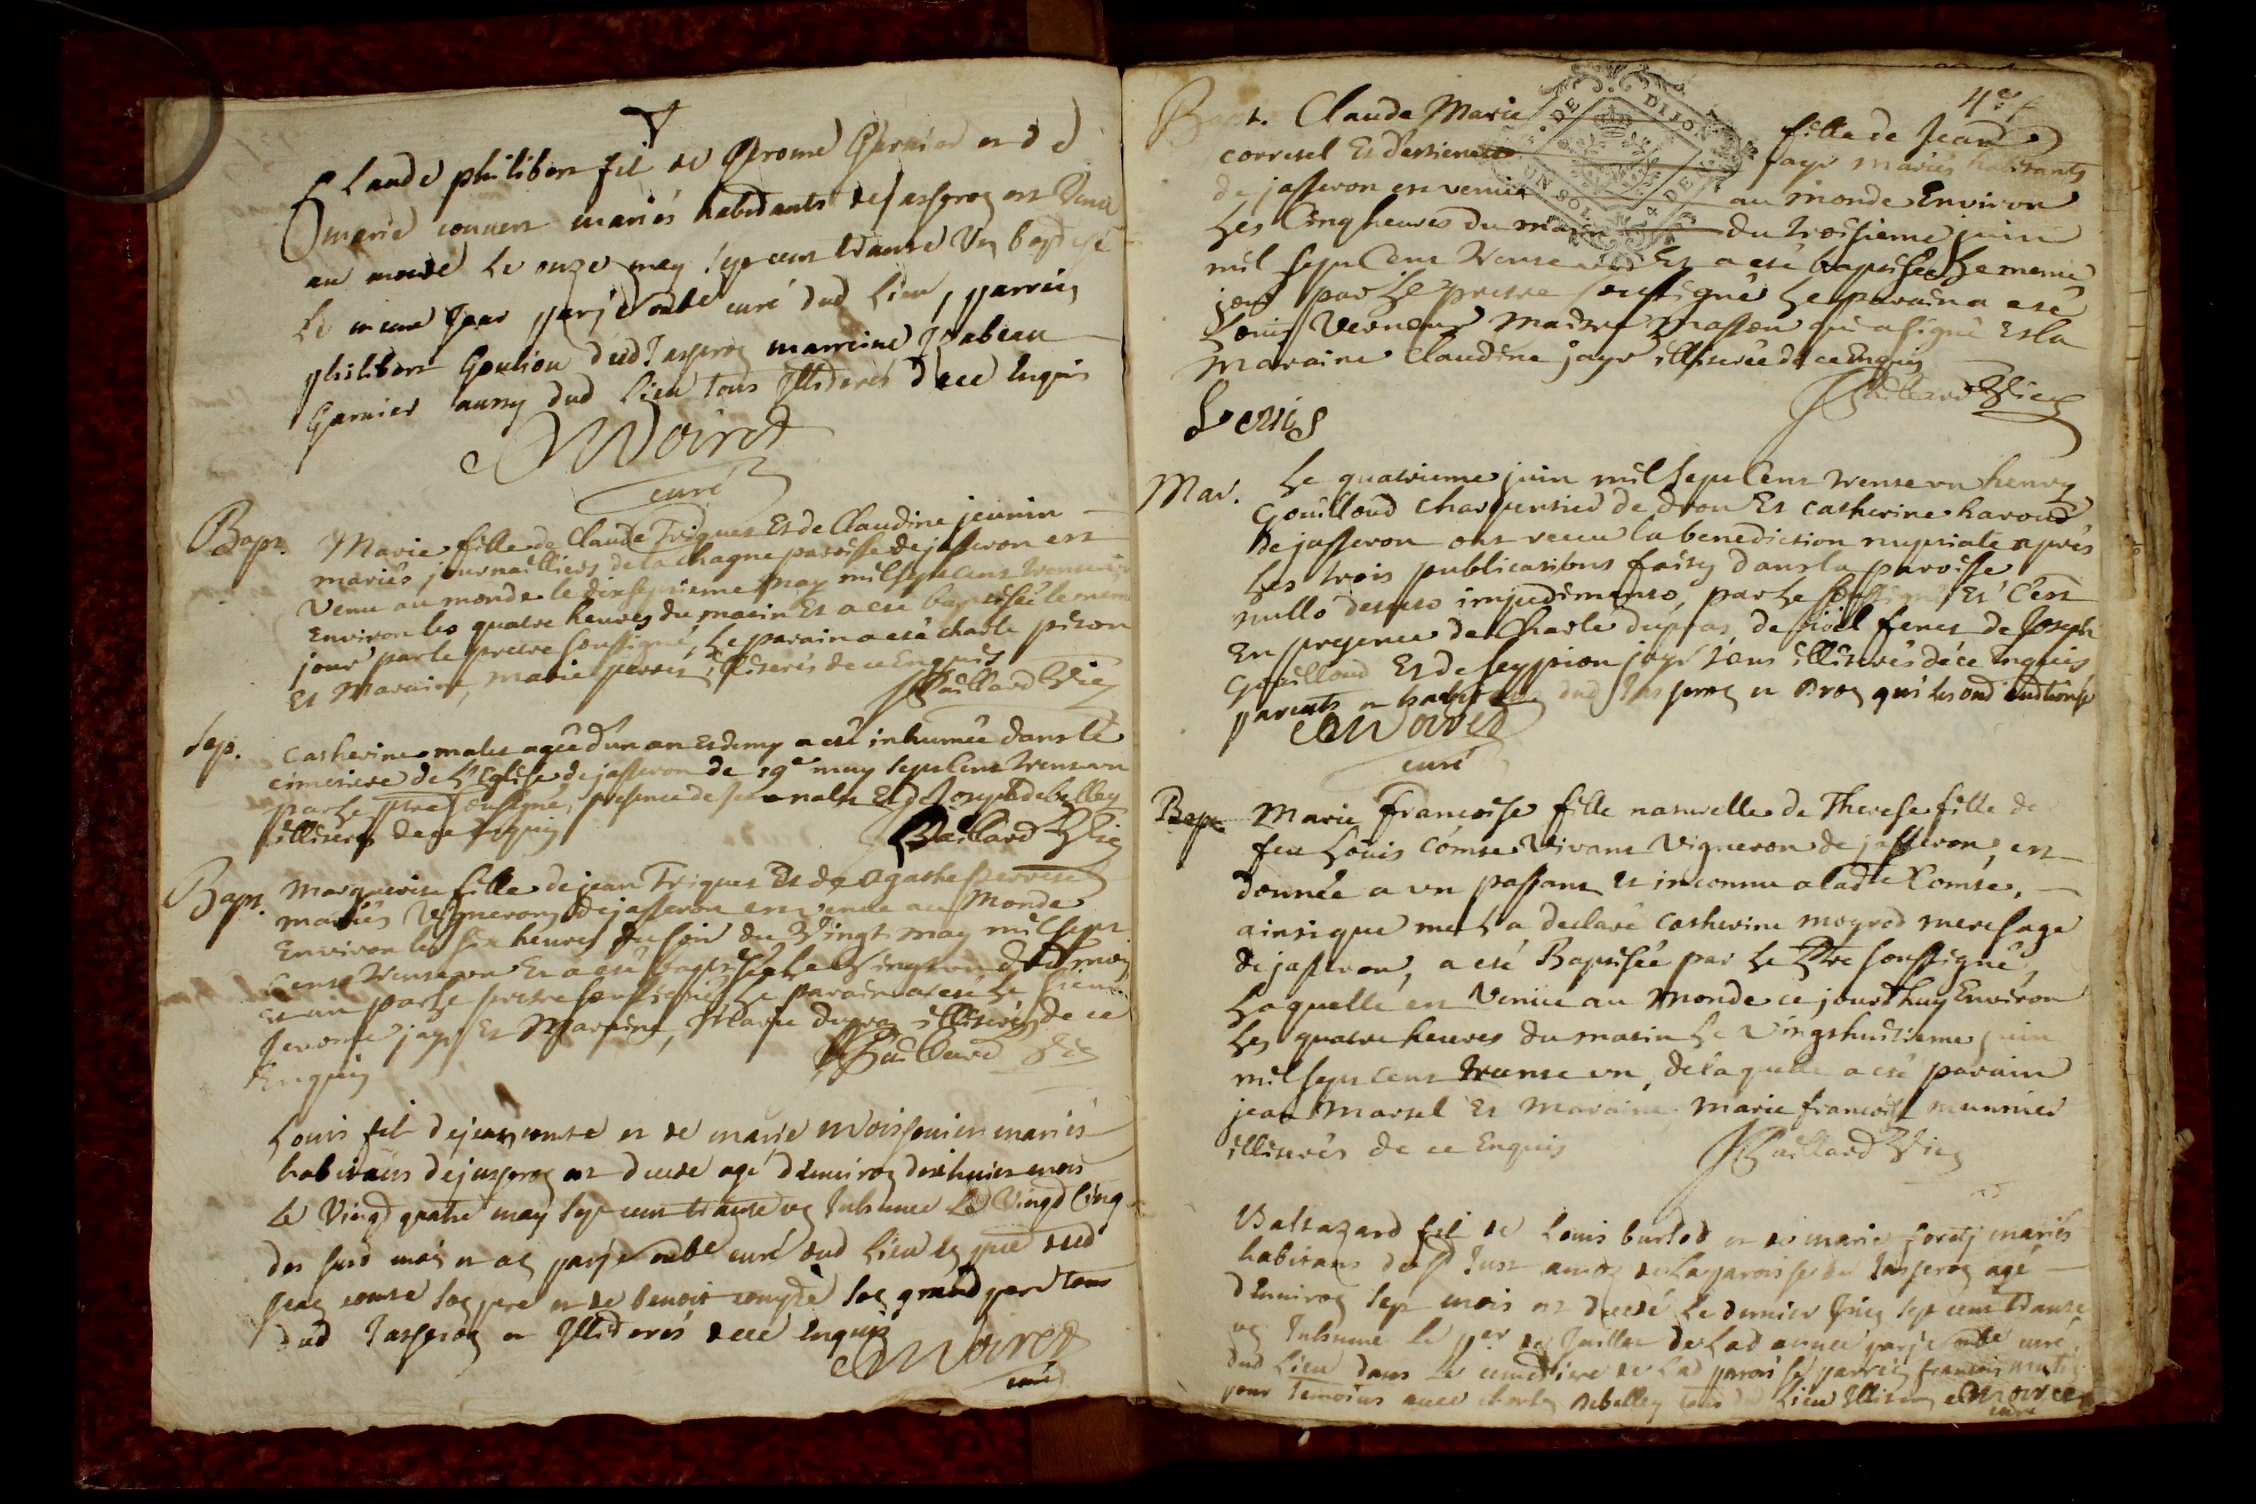 Claude philibert fil de Gerome Garnier et de
marie convert mariés habitants de Jasseron est venu
au monde le onze may sept cent trante un baptisé
le meme jour par je curé dud lieu, parrein
philibert Goulion dud Jasseron marreine Isabeau
Garnier aussy dud lieu tous illiterés de ce enquis
Moiret
curé
Bapt. Marie fille de Claude Triquet Et de Claudine jeunin
mariés journailliers de la Chagne paroisse de jasseron est
venu au monde le dixseptieme may mil sept cent trente un
Environ les quatre heures du matin Et a eté baptisée le meme
jour par le pretre soussigné, le parain a eté charle piron
Et Maraine, marie perret, illiterés de ce Enquis
Baillard Vic
Sep. Catherine malet agée d'un an Et demy a eté inhumée dans le
cimetiere de L'Eglise de jasseron le 19e may sept Cent trente un
par le ptre soussigné, presence de malet Et de Joseph debelley
illiterés de ce Enquis
Baillard Vic
Bapt. Marguerite fille de jean Triquet Et de Agathe perret
mariés Vignerons de jasseron est venue au Monde
Environ les six heures du soir du Vingt may mil sept
Cent trente un Et a eté baptisée le Vingt un dud may
Et an par le pretre soussigné, le parain a eté le sieur
Jerome jayr Et Maraine, Marie dupras illiterés de ce
Enquis
Baillard Vic
Louis fil de jean comte et de marie Moissonier mariés
habitans de jasseron est decede agé d'environ dix huict mois
le Vingt quatre may sept cent trante un Inhumé le Vingt Cinq
des susd mois et an par je curé dud lieu en pnce dud
jean comte son pere et de benoit comte son grand pere tous
dud Jasseron et Illiterés de ce enquis
Moiret
curé
4e f
Bapt. Claude Marie fille de Jean
corretel Et d'estienette jayr mariés habitants
de jasseron est venue au monde Environ
Les Cinq heures du matin du troisieme juin
mil sept Cent trente un Et a eté baptisée Le meme
jour par Le pretre soussigné Le parain a eté
Louis Verneur Maitre Masson qui a signé Et la
Maraine Claudine jayr illiterée de ce Enquis
Baillard Vic
Mar. Le quatrieme juin mil sept Cent trente un henry
Gouilloud charpentier de dron Et Catherine haroud
de jasseron ont receu la benediction nuptiale après
Les trois publications faites dans la paroisse
nullo detecto impedimento, par le soussigné, Et C'est
En presence de Charle dupras, de noël feret de Joseph
Gouilloud Et de scypion jayr tous illiterés de ce Enquis
parents et habitans dud Jasseron et Dron qui les ond
Moiret
curé
Bapt. Marie Francoise fille naturelle de Therese fille de
feu Louis Comte Vivant Vigneron de jasseron, est
donnée a un passant et inconnu a ladte Comte,
ainsi que me L'a declaré Catherine moyrod mere sage
de jasseron, a eté Baptisée par Le Ptre soussigné,
Laquelle est Venüe au Monde ce jourd'huy Environ
Les quatre heures du matin Le Vingthuitieme juin
mil sept cent trente un, de laquelle a eté parain
jean Martel Et Maraine Marie francoise meunier
illiterés de ce Enquis
Baillard Vic
Baltazard fil de Louis burlod et de marie foretj mariés
habitans de St Just annex de la paroisse de Jasseron agé
d'environ sept mois est decedé le dernier Juin sept cent trante
un Inhumé le per de Juillet de lad année par je curé
dud lieu dans le cimetiere de lad paroisse francois
pour temoins avec charle debelley tous dud lieu Illiterés Moiret
curé